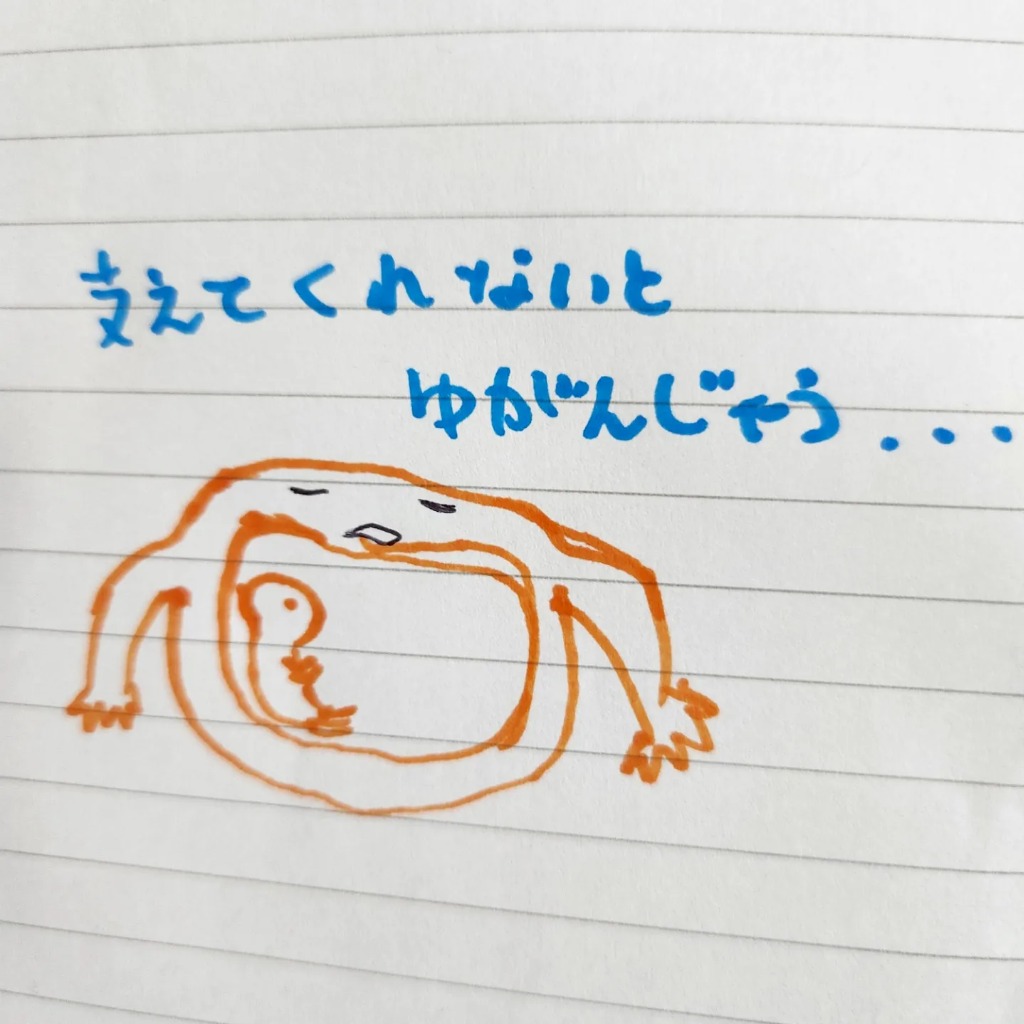 支えてくれないと
ゆがんじゃう...